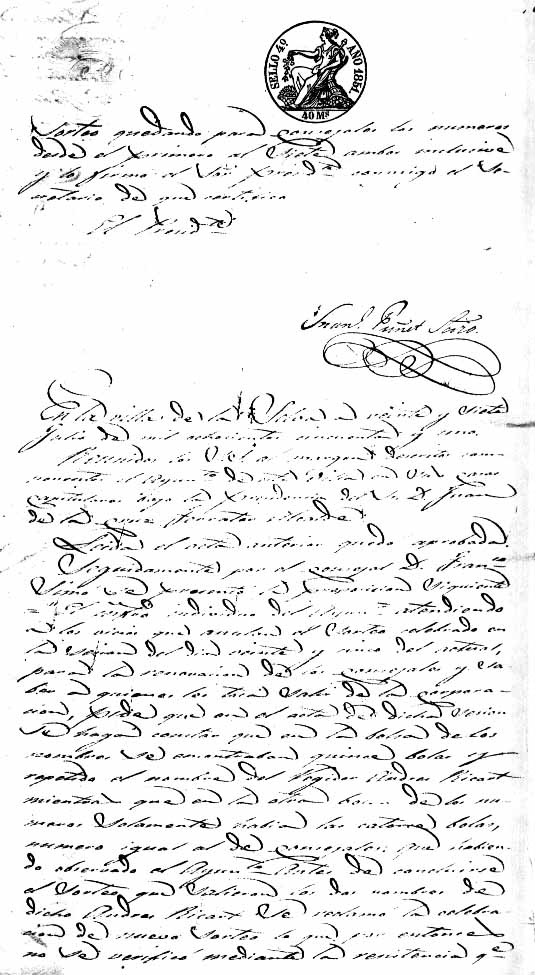 SELLO 4º AÑO 1851.
40 Ms
Sorteo quedando para concejales los numeros
desde el primero al siete ambos inclusive
y lo firma el Sor Presidte conmigo el Se-
cretario de que certifico
El Presidte
Juan Puñet Srio.
En la villa de la Selva a veinte y siete
Julio de mil ochocientos cincuenta y uno.
Reunidos los al margen
el Ayunto de esta Villa en
capitulares bajo la Presidencia del Sr. D. Juan
de la Cruz Alcalde
Leida el acta anterior quedo aprobada
Seguidamente por el concejal D. Franco
Simo se presento la proposicion siguiente
"El individuo del Ayunto atendiendo
a los vicios que anulan el Sorteo celebrado en
la Sesion del dia veinte y cinco del actual,
para la renovacion de los concejales y Sa-
ber a quienes les toca Salir de la corpora-
cion, pide que en el acta de dicha Sesion
Se haga constar que en la bolsa de los
nombres se encontraban quince bolas y
repetido el nombre del Regidor Andres Ricart
mientras que en la otra bolsa de los nu-
meros Solamente habia las catorce bolas,
numero igual al de concejales; que habien-
do observado el Ayunto antes de concluirse
el Sorteo que Salieron los dos nombres de
dicho Andres Ricart Se reclamó la celebra-
cion de nuevo Sorteo lo que por entonces
no se verificó mediante la renitencia qe